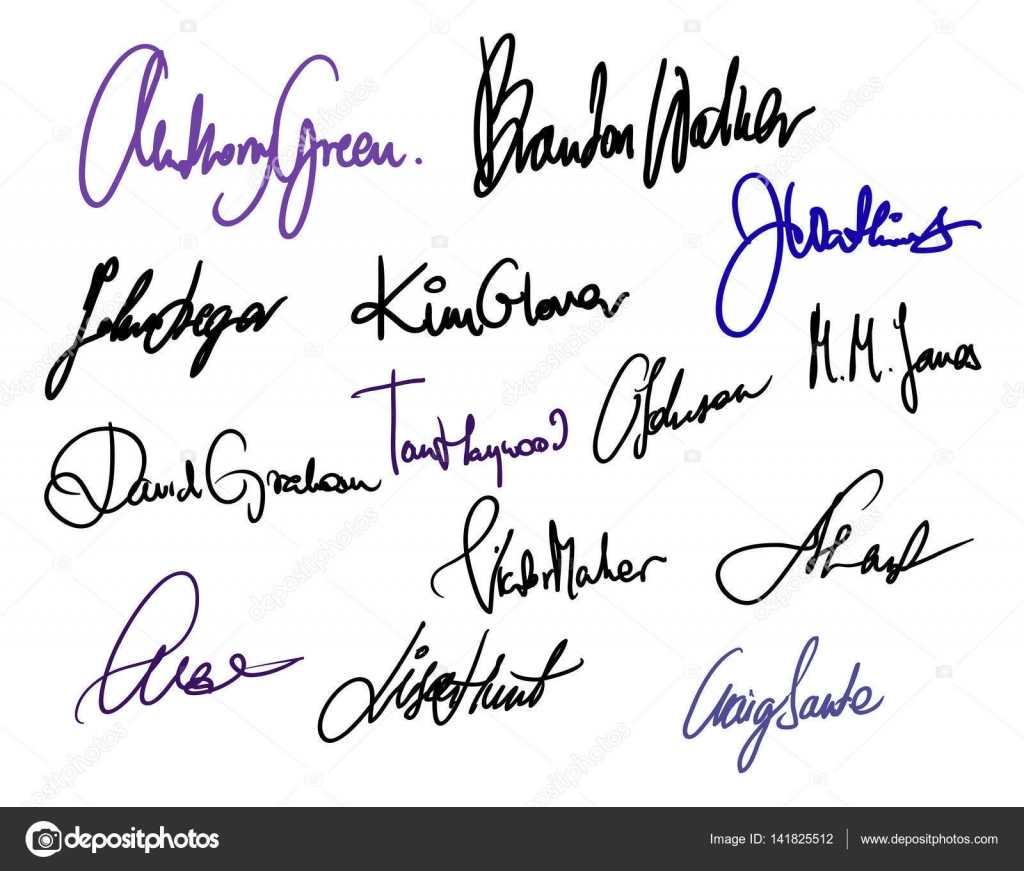 Anthony Green.
Brandon Walker
John Segar
Kim Glover
M.M. James
Tom Haywood
David Graham
Victor Maker
Lisa Hunt
Craig Sante
depositphotos
Image ID: 141825512
www.depositphotos.com